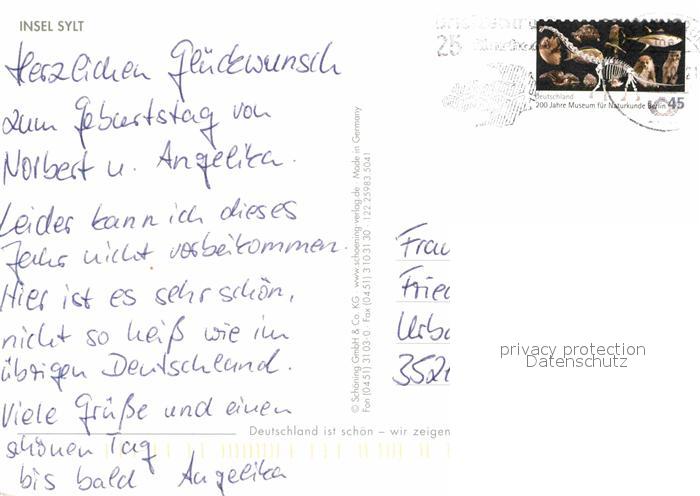 INSEL SYLT
Herzlichen Glückwunsch
zum Geburtstag von
Norbert u. Angelika.
Leider kann ich dieses
Jahr nicht vorbeikommen.
Hier ist es sehr schön,
nicht so heiß wie im
übrigen Deutschland.
Viele Grüße und einen
schönen Tag
bis bald Angelika
© Schöning GmbH & Co. KG · www.schoening-verlag.de Made in Germany
Fon (0451) 31 03-0 · Fax (0451) 3 10 31 30 · 122 25983 5041
Deutschland ist schön – wir zeigen
25
Deutschland
200 Jahre Museum für Naturkunde Berlin 45
Frau
Fried
Urba
3521
privacy protection
Datenschutz